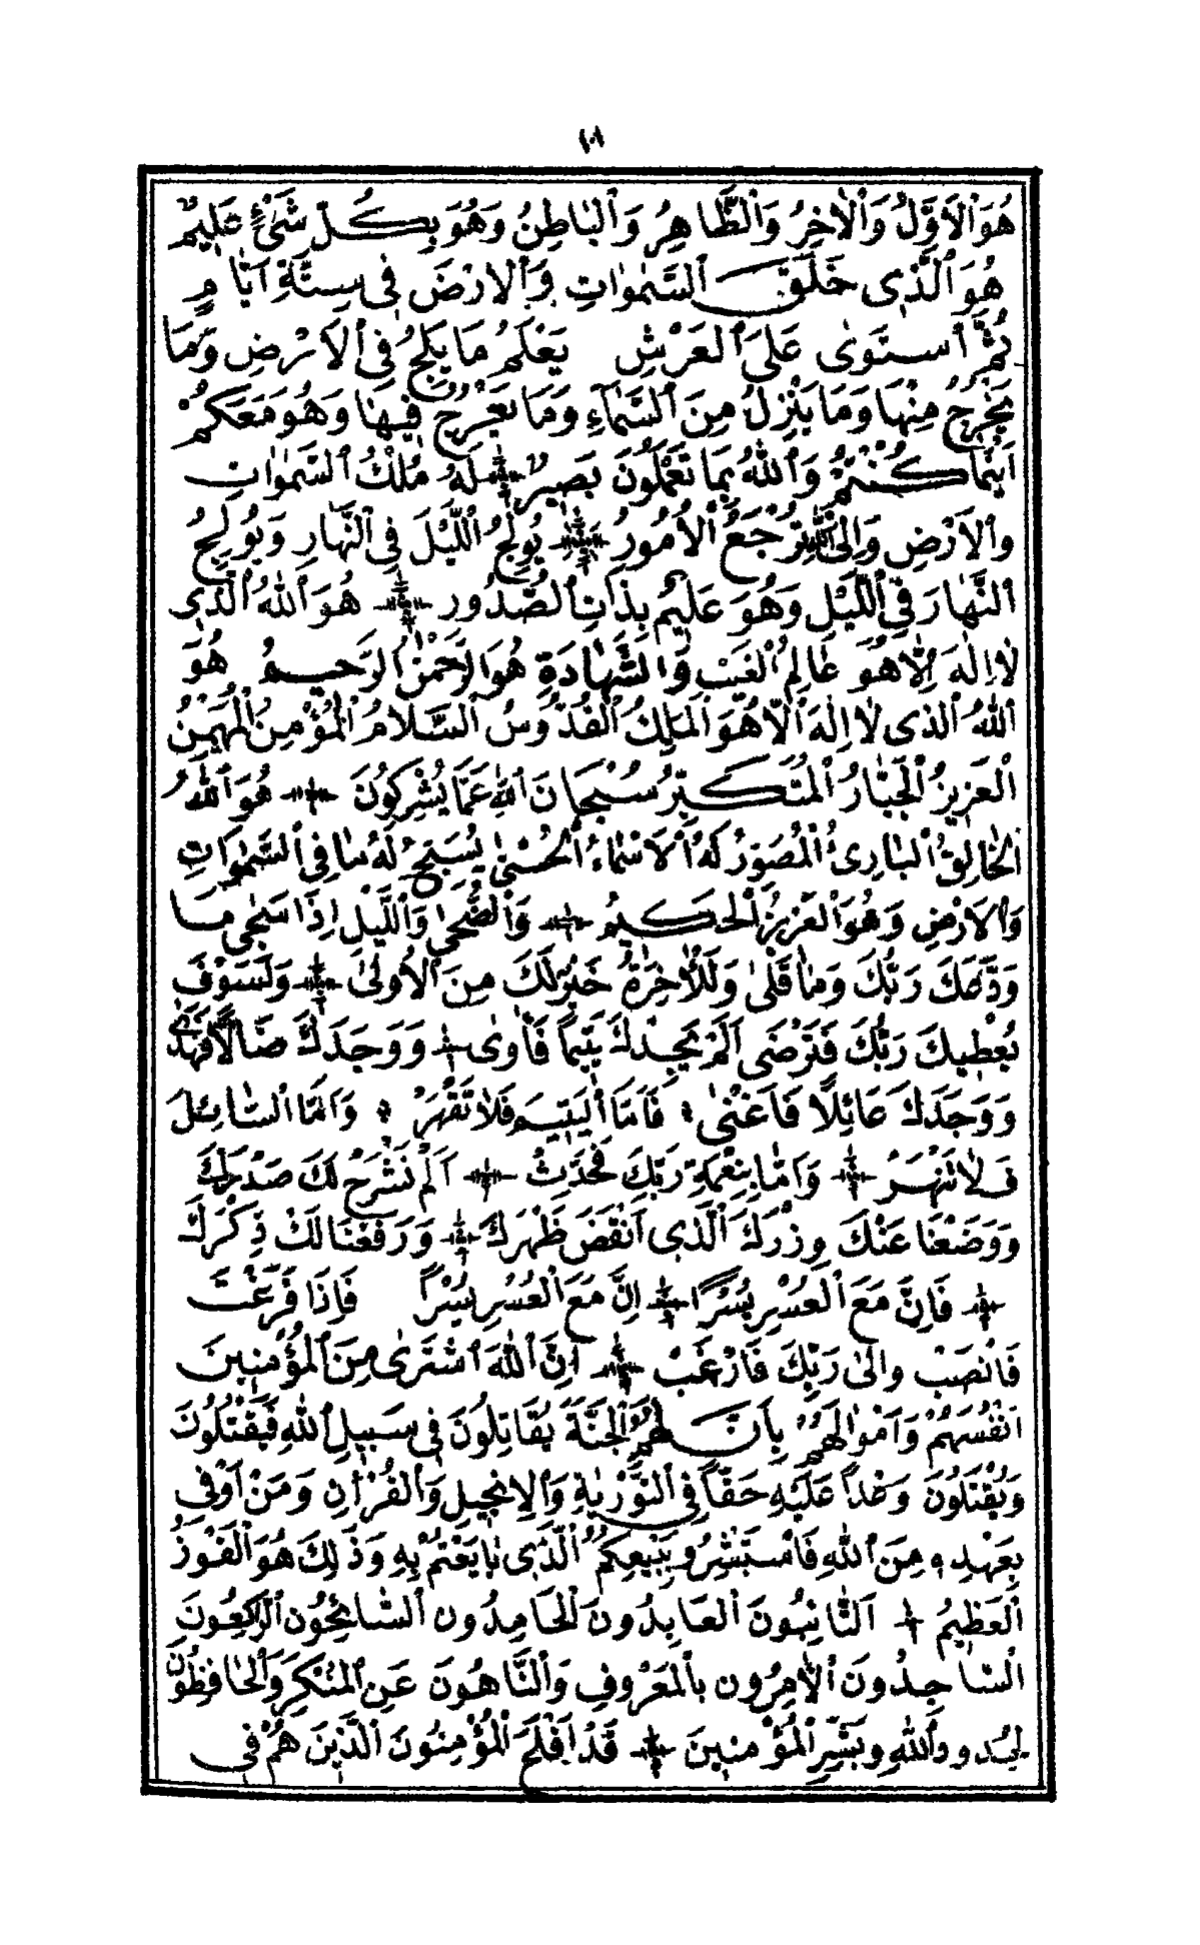 ١٠١
هُوَ ٱلْاَوَّلُ وَٱلْاٰخِرُ وَٱلظَّاهِرُ وَٱلْبَاطِنُ وَهُوَ بِكُلِّ شَىْءٍ عَلِيمٌ
هُوَ ٱلَّذِى خَلَقَ ٱلسَّمٰوَاتِ وَٱلْارْضَ فِى سِتَّةِ اَيَّامٍ
ثُمَّ ٱسْتَوٰى عَلَى ٱلْعَرْشِ يَعْلَمُ مَا يَلِجُ فِى ٱلْاَرْضِ وَمَا
يَخْرُجُ مِنْهَا وَمَا يَنْزِلُ مِنَ ٱلسَّمَآءِ وَمَا يَعْرُجُ فِيهَا وَهُوَ مَعَكُمْ
اَيْنَمَا كُنْتُمْ وَٱللهُ بِمَا تَعْمَلُونَ بَصِيرٌ لَهُ مُلْكُ ٱلسَّمٰوَاتِ
وٱلْاَرْضِ وَاِلَى ٱللهِ تُرْجَعُ ٱلْاُمُورُ يُولِجُ ٱللَّيْلَ فِى ٱلنَّهَارِ وَيُولِجُ
ٱلنَّهَارَ فِى ٱللَّيْلِ وَهُوَ عَلِيمٌ بِذَاتِ ٱلصُّدُورِ هُوَ ٱللهُ ٱلَّذِى
لَا اِلٰهَ اِلَّا هُوَ عَالِمُ ٱلْغَيْبِ وَٱلشَّهَادَةِ هُوَ ٱلرَّحْمٰنُ ٱلرَّحِيمُ هُوَ
ٱللهُ ٱلَّذِى لَا اِلٰهَ اَلَّا هُوَ ٱلْمَلِكُ ٱلْقُدُّوسُ ٱلسَّلَامُ ٱلْمُؤْمِنُ ٱلْمُهَيْمِنُ
ٱلْعَزِيزُ ٱلْجَبَّارُ ٱلْمُتَكَبِّرُ سُبْحَانَ ٱللهِ عَمَّا يُشْرِكُونَ هُوَ ٱللهُ
ٱلْخَالِقُ ٱلْبَارِئُ ٱلْمُصَوِّرُ لَهُ ٱلْاَسْمَاءُ ٱلْحُسْنٰى يُسَبِّحُ لَهُ مَا فِى ٱلسَّمٰوَاتِ
وَٱلْاَرْضِ وَهُوَ ٱلْعَزِيزُ ٱلْحَكِيمُ وَٱلضُّحٰى وَٱللَّيْلِ اِذَا سَجٰى مَا
وَدَّعَكَ رَبُّكَ وَمَا قَلٰى وَلَلْاٰخِرَةُ خَيْرٌ لَكَ مِنَ ٱلْاُولٰى وَلَسَوْفَ
يُعْطِيكَ رَبُّكَ فَتَرْضَى اَلَمْ يَجِدْكَ يَتِيمًا فَاٰوٰى وَوَجَدَكَ ضَالًّا فَهَدٰى
وَوَجَدَكَ عَائِلًا فَاَغْنٰى فَاَمَّا ٱلْيَتِيمَ فَلَا تَقْهَرْ وَاَمَّا ٱلسَّائِلَ
فَلَا تَنْهَرْ وَاَمَّا بِنِعْمَةِ رَبِّكَ فَحَدِّثْ اَلَمْ نَشْرَحْ لَكَ صَدْرَكَ
وَوَضَعْنَا عَنْكَ وِزْرَكَ ٱلَّذِى اَنْقَضَ ظَهْرَكَ وَرَفَعْنَا لَكَ ذِكْرَكَ
فَاِنَّ مَعَ ٱلْعُسْرِ يُسْرًا اِنَّ مَعَ ٱلْعُسْرِ يُسْرًا فَاِذَا فَرَغْتَ
فَانْصَبْ وَالٰى رَبِّكَ فَارْغَبْ اِنَّ ٱللهَ ٱشْتَرٰى مِنَ ٱلْمُؤْمِنِينَ
اَنْفُسَهُمْ وَاَمْوَالَهُمْ بِاَنَّ لَهُمُ ٱلْجَنَّةَ يُقَاتِلُونَ فِى سَبِيلِ ٱللهِ فَيَقْتُلُونَ
وَيُقْتَلُونَ وَعْدًا عَلَيْهِ حَقًّا فِى ٱلتَّوْرٰيةِ وَٱلْاِنْجِيلِ وَٱلْقُرْاٰنِ وَمَنْ اَوْفٰى
بِعَهْدِهِ مِنَ ٱللهِ فَاسْتَبْشِرُو بِبَيْعِكُمُ ٱلَّذِى بَايَعْتُمْ بِهِ وَذٰلِكَ هُوَ ٱلْفَوْزُ
ٱلْعَظِيمُ ٱلتَّائِبُونَ ٱلْعَابِدُونَ ٱلْحَامِدُون ٱلسَّائِحُون ٱلرَّاكِعُونَ
ٱلسَّاجِدُونَ ٱلْاٰمِرُون بِٱلْمَعْرُوفِ وَٱلنَّاهُونَ عَنِ ٱلْمُنْكَرِ وَٱلْحَافِظُونَ
لِحُدودِ ٱللهِ وَبَشِّرِ ٱلْمُؤْمِنِينَ قَدْ اَفْلَحَ ٱلْمُؤْمِنُونَ ٱلَّذِينَ هُمْ فِى